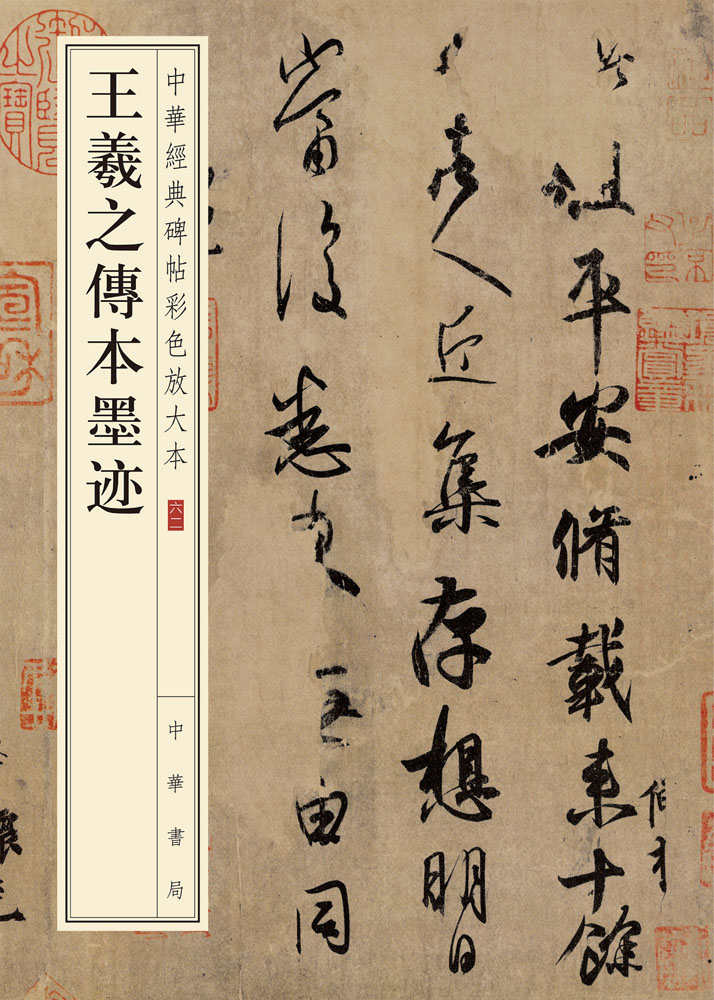 此粗平安脩載來十餘
日諸人近集存想明日
當復悉來無由同
中華經典碑帖彩色放大本
六二
中華書局
王羲之傳本墨迹